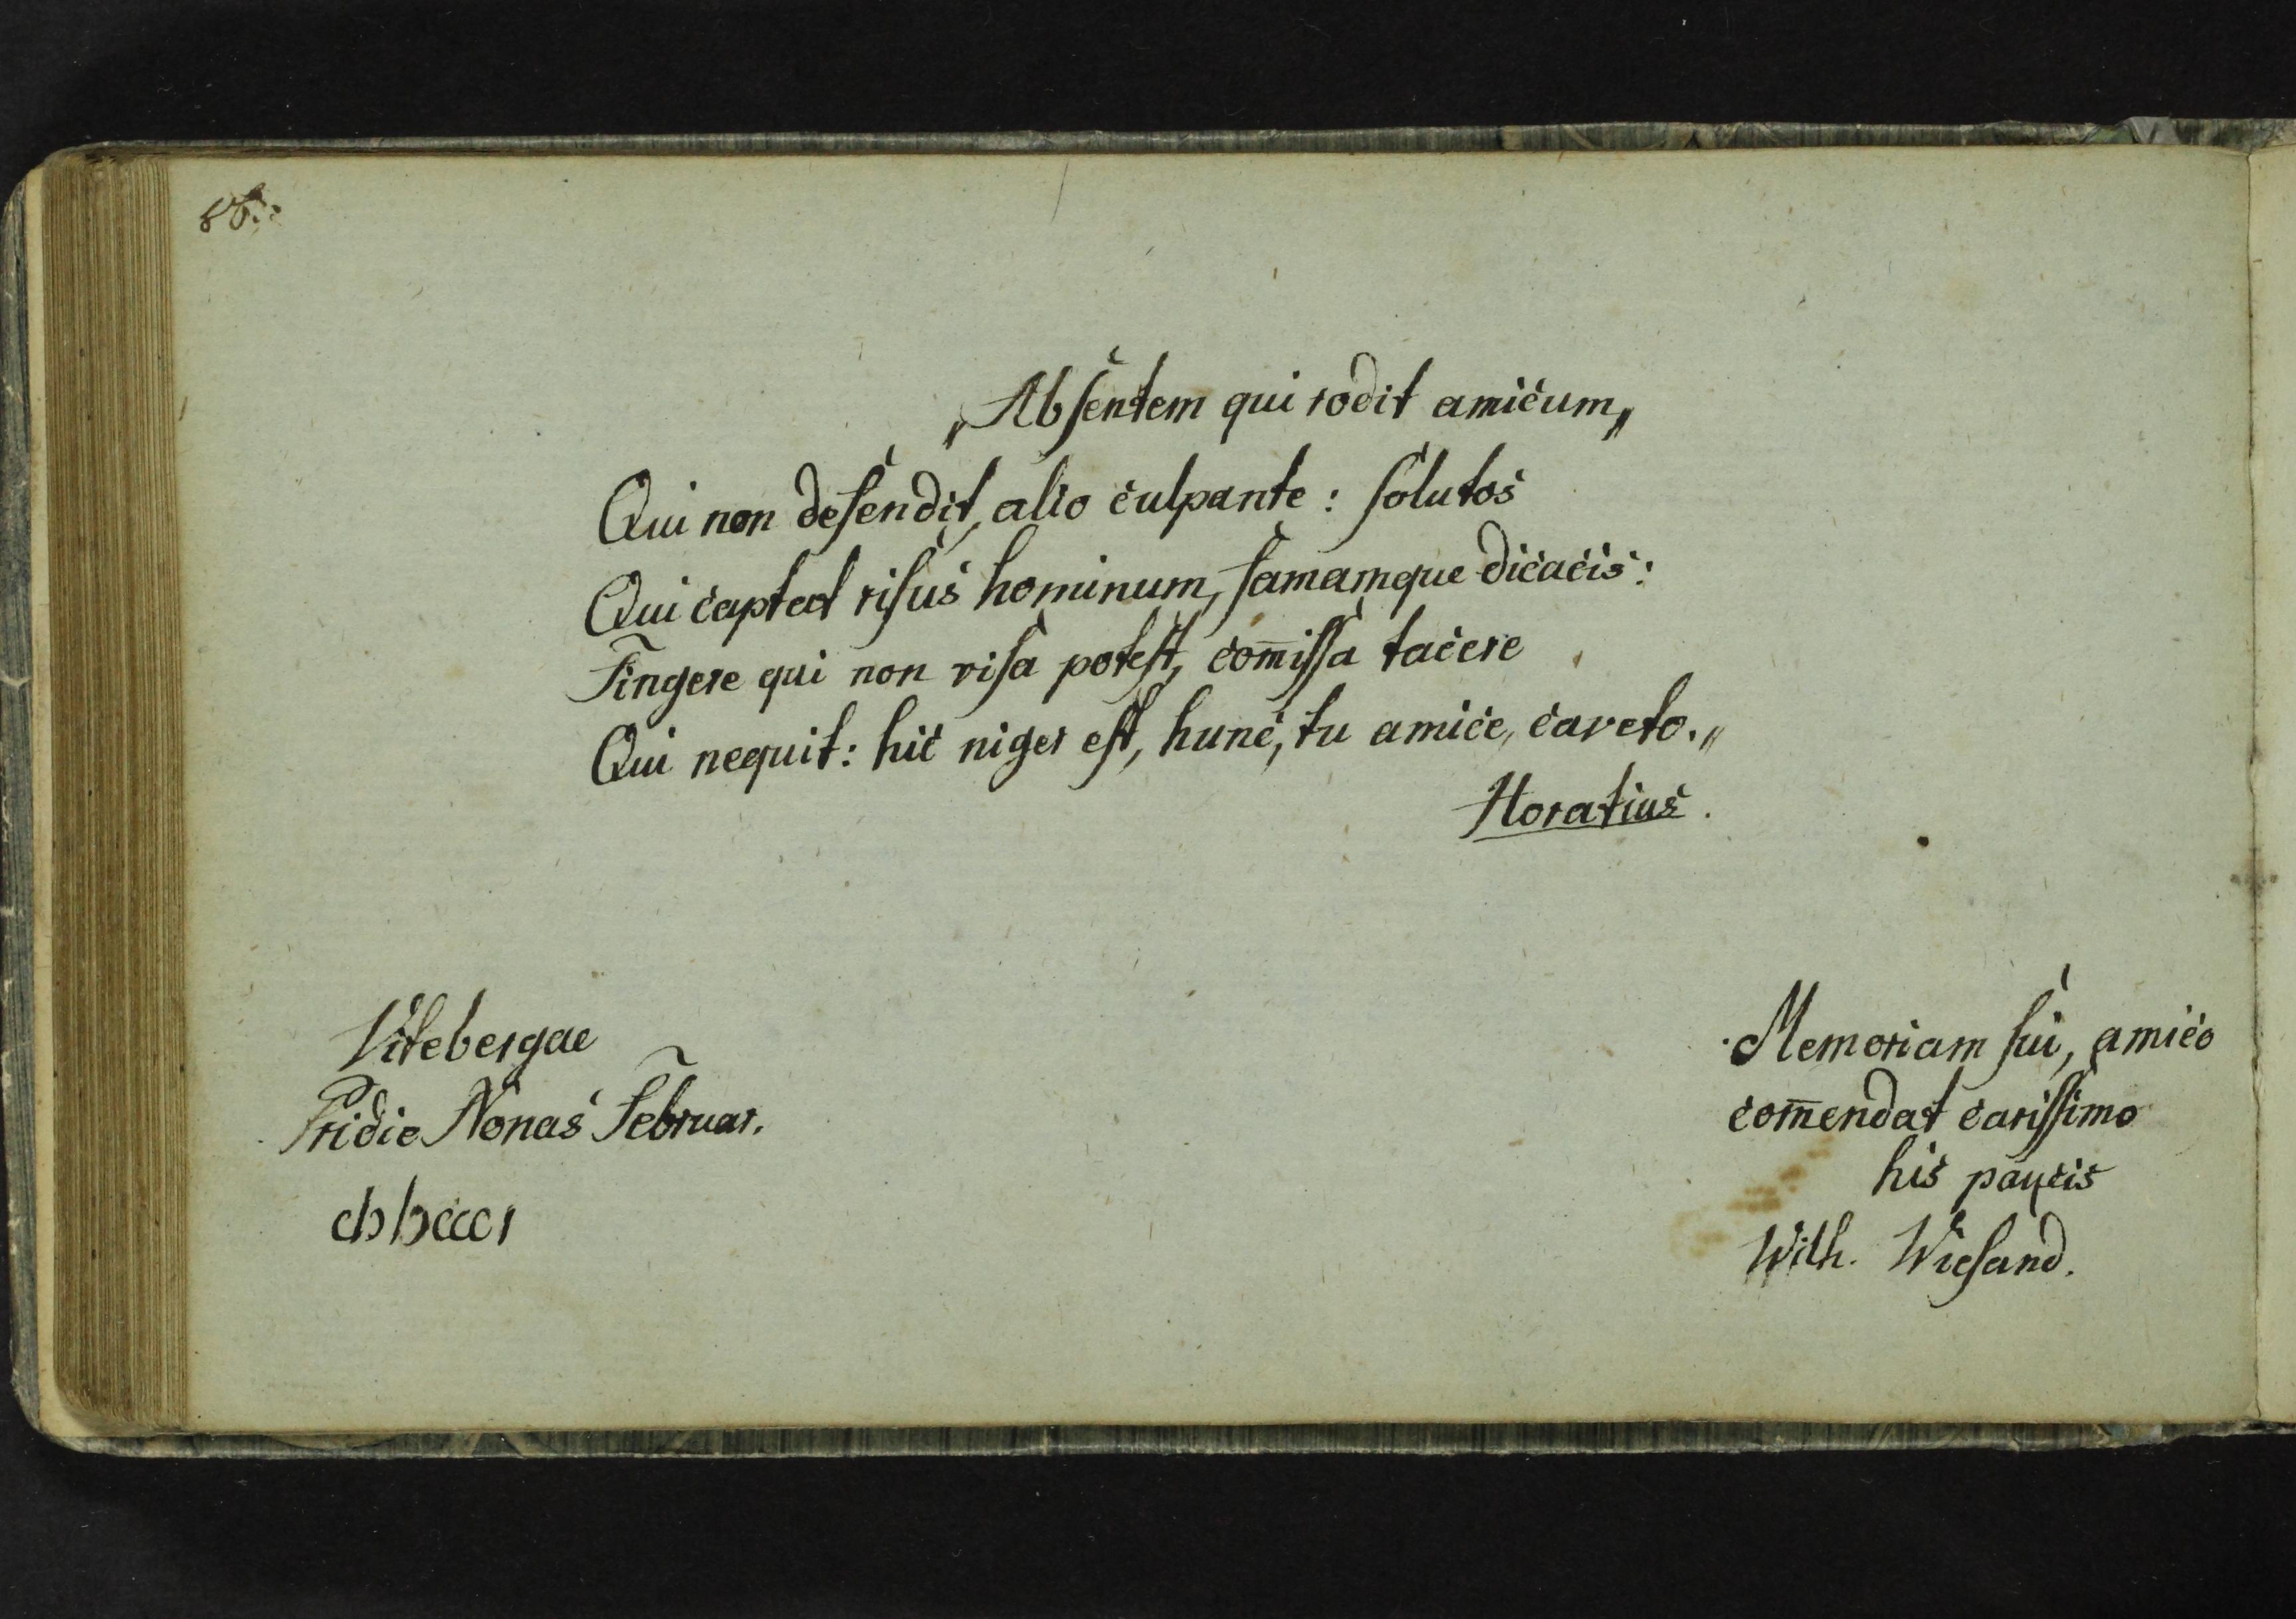 „Absentem qui rodit amicum„
Qui non defendit, alio culpante: solutos
Qui captat risus hominum, famamque dicacis:
Fingere qui non visa potest, com̅issa tacere
Qui nequit: hic niger est, hunc, tu amice, caveto.„
Horatius.
Vitebergae
Pridie Nonas Februar.
cIↄ Iↄcccı
Memoriam sui, amico
com̅endat carissimo
his paucis
Wilh. Wiesand.